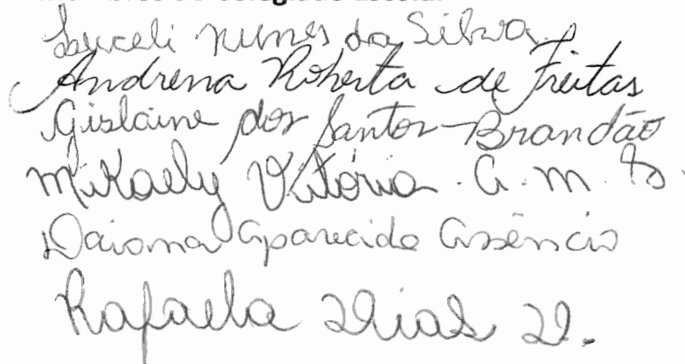 Luceli Nunes da Silva.
Andrena Roberta de Freitas
Gislaine dos Santos Brandão
Mikaely Vitória. A. M. D.
Daiana Aparecida Assêncio
Rafaela Dias D.